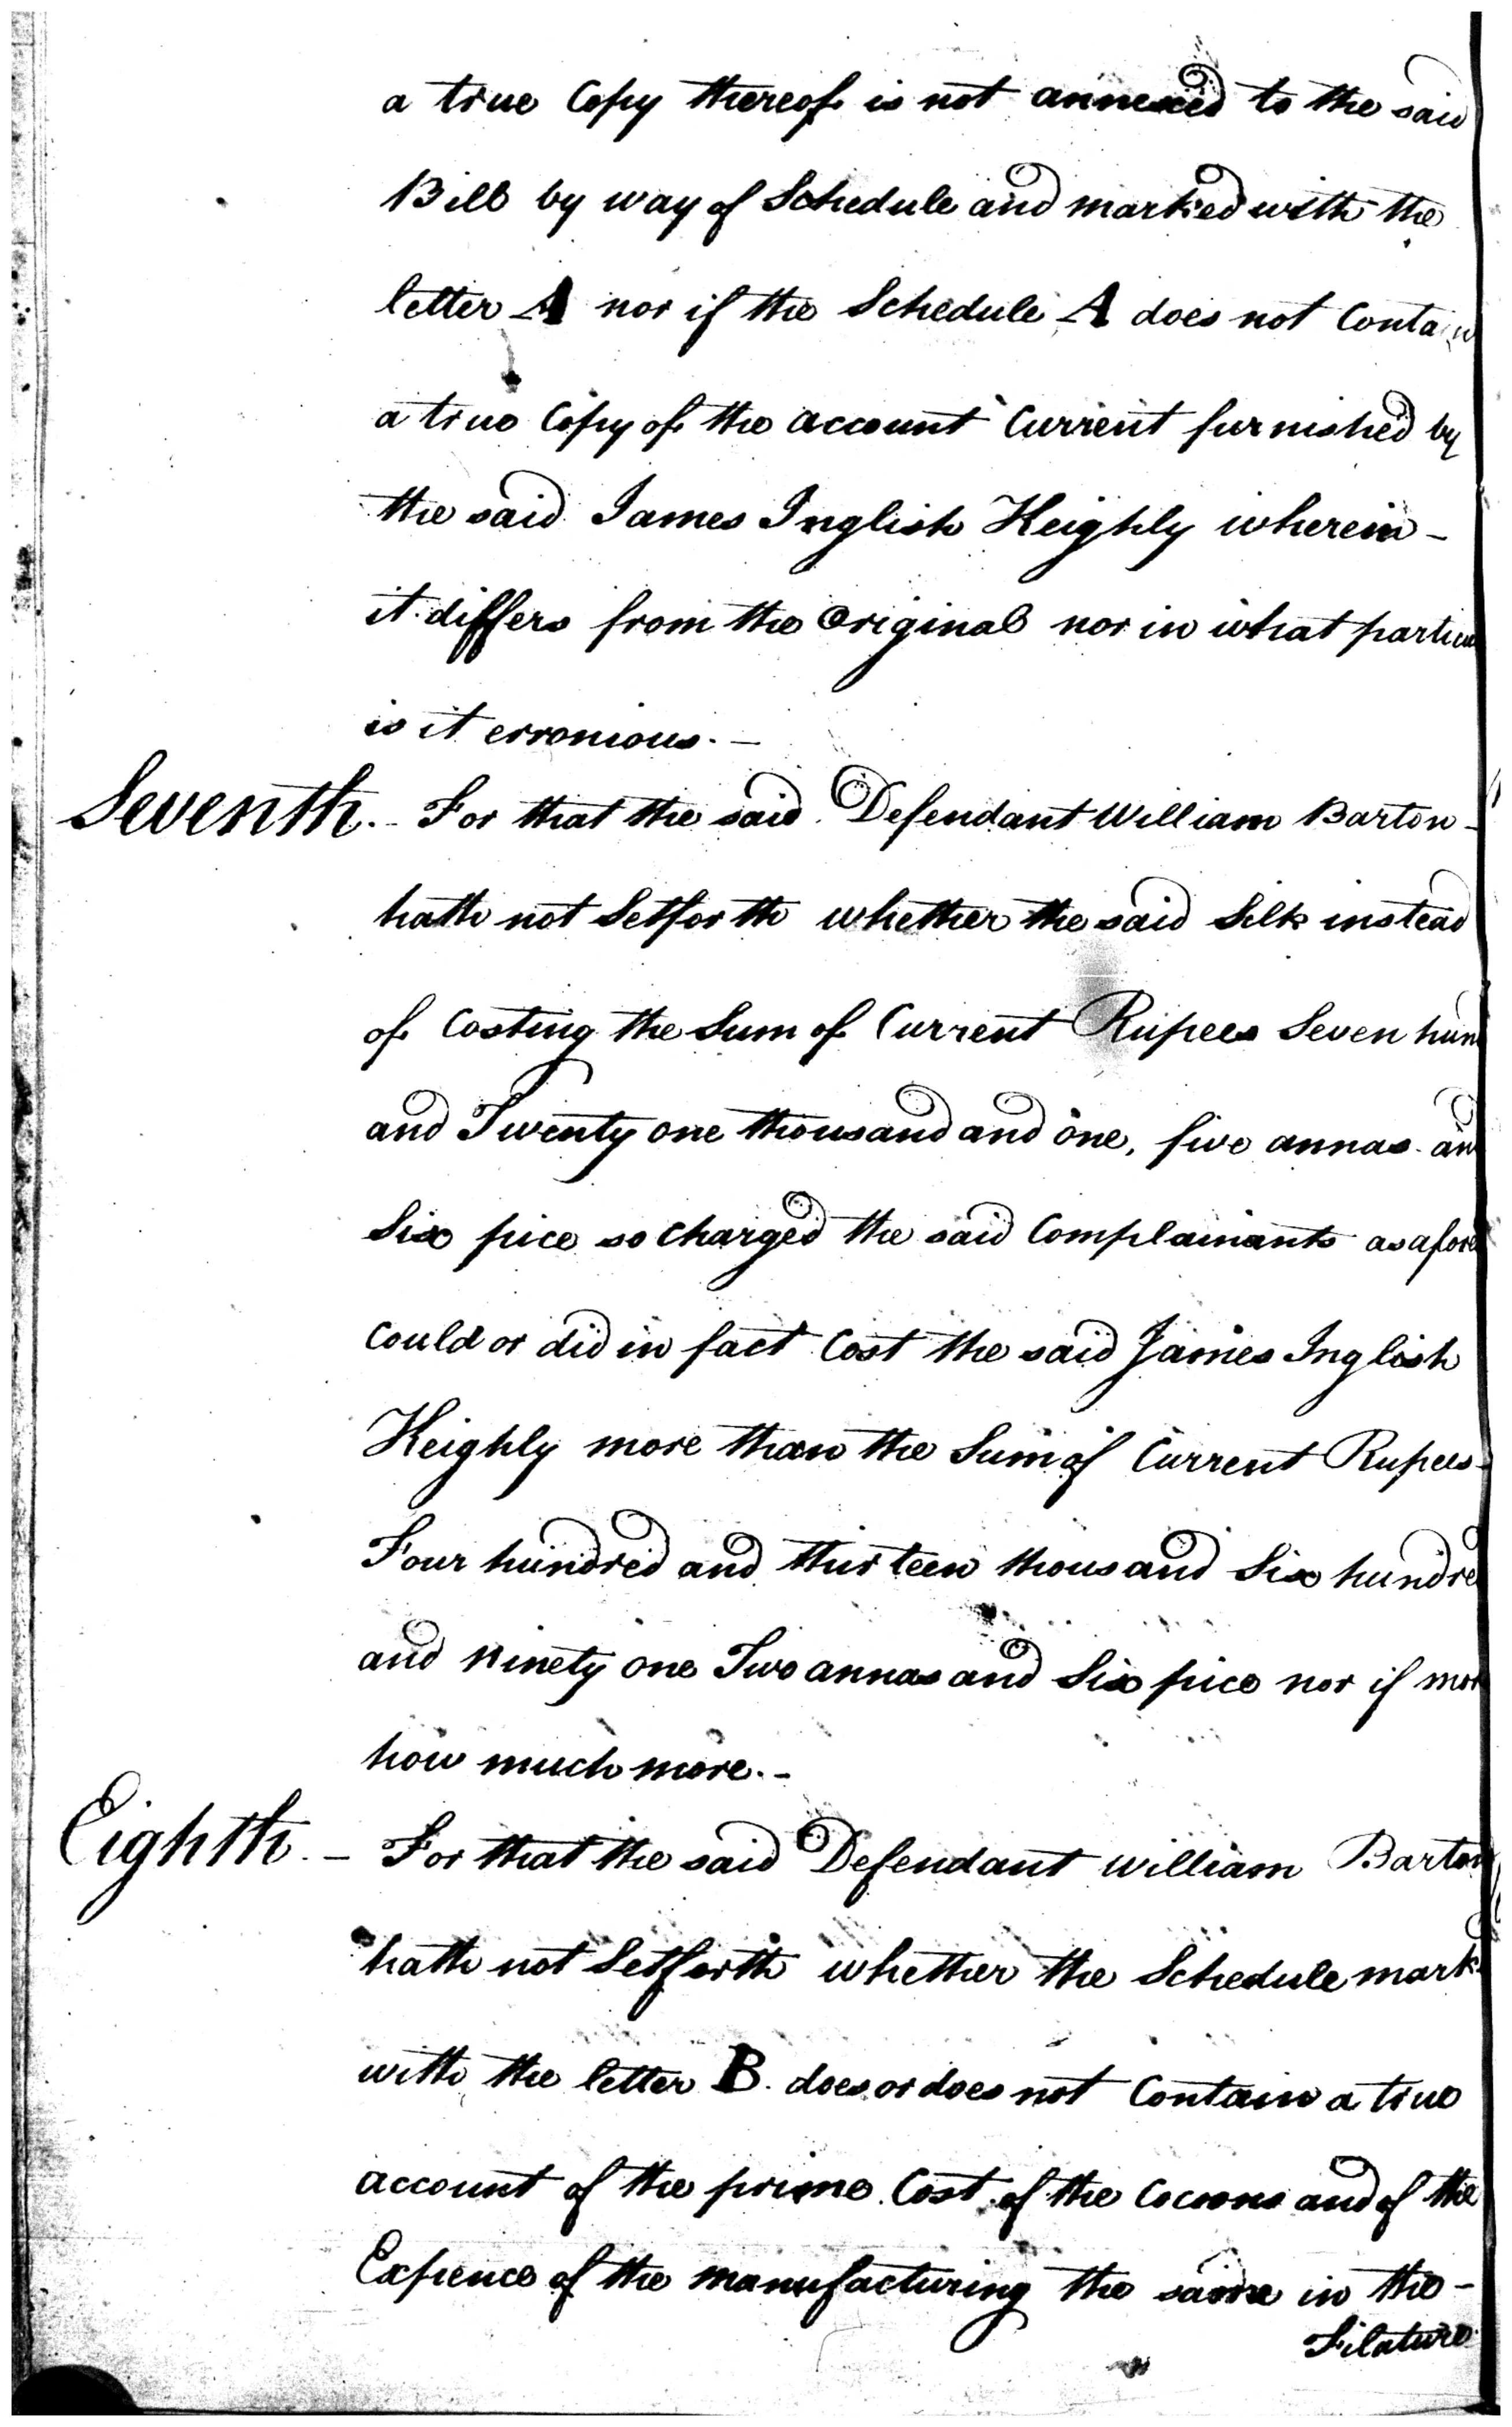 a true Copy thereof is not annexed to the said
Bill by way of Schedule and marked with the
letter A nor if the Schedule A does not Contain
a true Copy of the account Current furnished by
the said James Inglish Keighly wherein -
it differs from the Original nor in what particu
is it erronious. -
Seventh. - For that the said Defendant William Barton -
hath not Setforth whether the said Silk instead
of Costing the Sum of Current Rupees Seven hun
and Twenty one thousand and one, five annas an
Six pice so charged the said Complainants as afore
Could or did in fact Cost the said James Inglish
Keighly more than the Sum of Current Rupees -
Four hundred and thirteen thousand Six hundre
and ninety one Two annas and Six pice nor if mor
how much more. -
Eighth. - For that the said Defendant William Barton
hath not Setforth whether the Schedule mark
with the letter B. does or does not Contain a true
account of the prime Cost of the Cocoons and of the
Expence of the manufacturing the same in the -
Filature